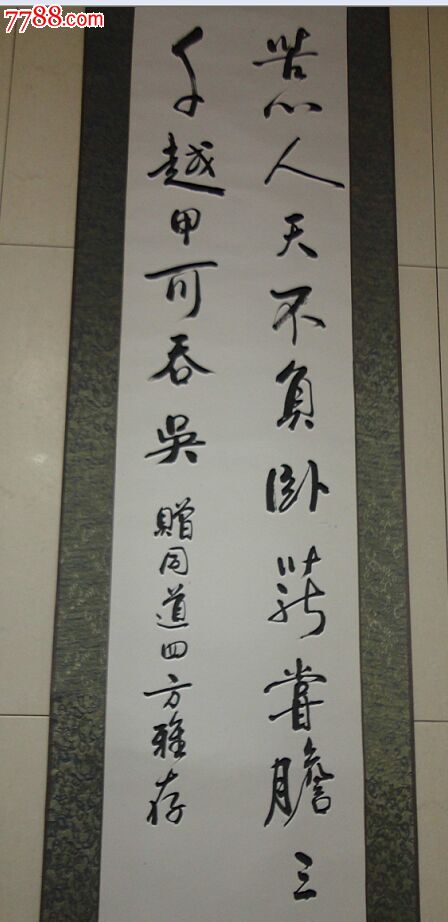 7788.com
苦心人天不負卧薪嘗膽三
千越甲可吞吳 贈同道四方雅存